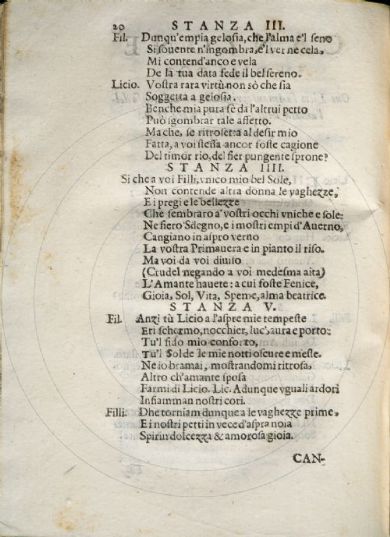 20 STANZA III.
Fil. Dunqu'empia gelosia, che l'alma e'l seno
Si souente n'ingombra, e'l ver ne cela,
Mi contend'anco e vela
De la tua data fede il bel sereno.
Licio. Vostra rara virtù non sò che sia
Soggetta a gelosia.
Benche mia pura fè da l'altrui petto
Può sgombrar tale affetto.
Ma che, se ritrosetta al desir mio
Fatta, a voi stessa ancor foste cagione
Del timor rio, del fier pungente sprone?
STANZA IIII.
Si che a voi Filli, vnico mio bel Sole,
Non contende altra donna le vaghezze,
E i pregi e le bellezze
Che sembraro a' vostri occhi vniche e sole:
Ne fiero Sdegno, e i mostri empi d'Auerno,
Cangiano in aspro verno
La vostra Primauera e in pianto il riso.
Ma voi da voi diuiso
(Crudel negando a voi medesma aita)
L'Amante hauete: a cui foste Fenice,
Gioia, Sol, Vita, Speme, alma beatrice.
STANZA V.
Fil. Anzi tù Licio a l'aspre mie tempeste
Eri schermo, nocchier, luc', aura e porto:
Tu'l fido mio conforto,
Tu'l Sol de le mie notti oscure e meste.
Ne io bramai, mostrandomi ritrosa,
Altro ch'amante sposa
Farmi di Licio. Lic. Adunque vguali ardori
Infiamman nostri cori.
Filli: Dhe torniam dunque a le vaghezze prime,
E i nostri petti in vece d'aspra noia
Spirin dolcezza & amorosa gioia.
CAN-